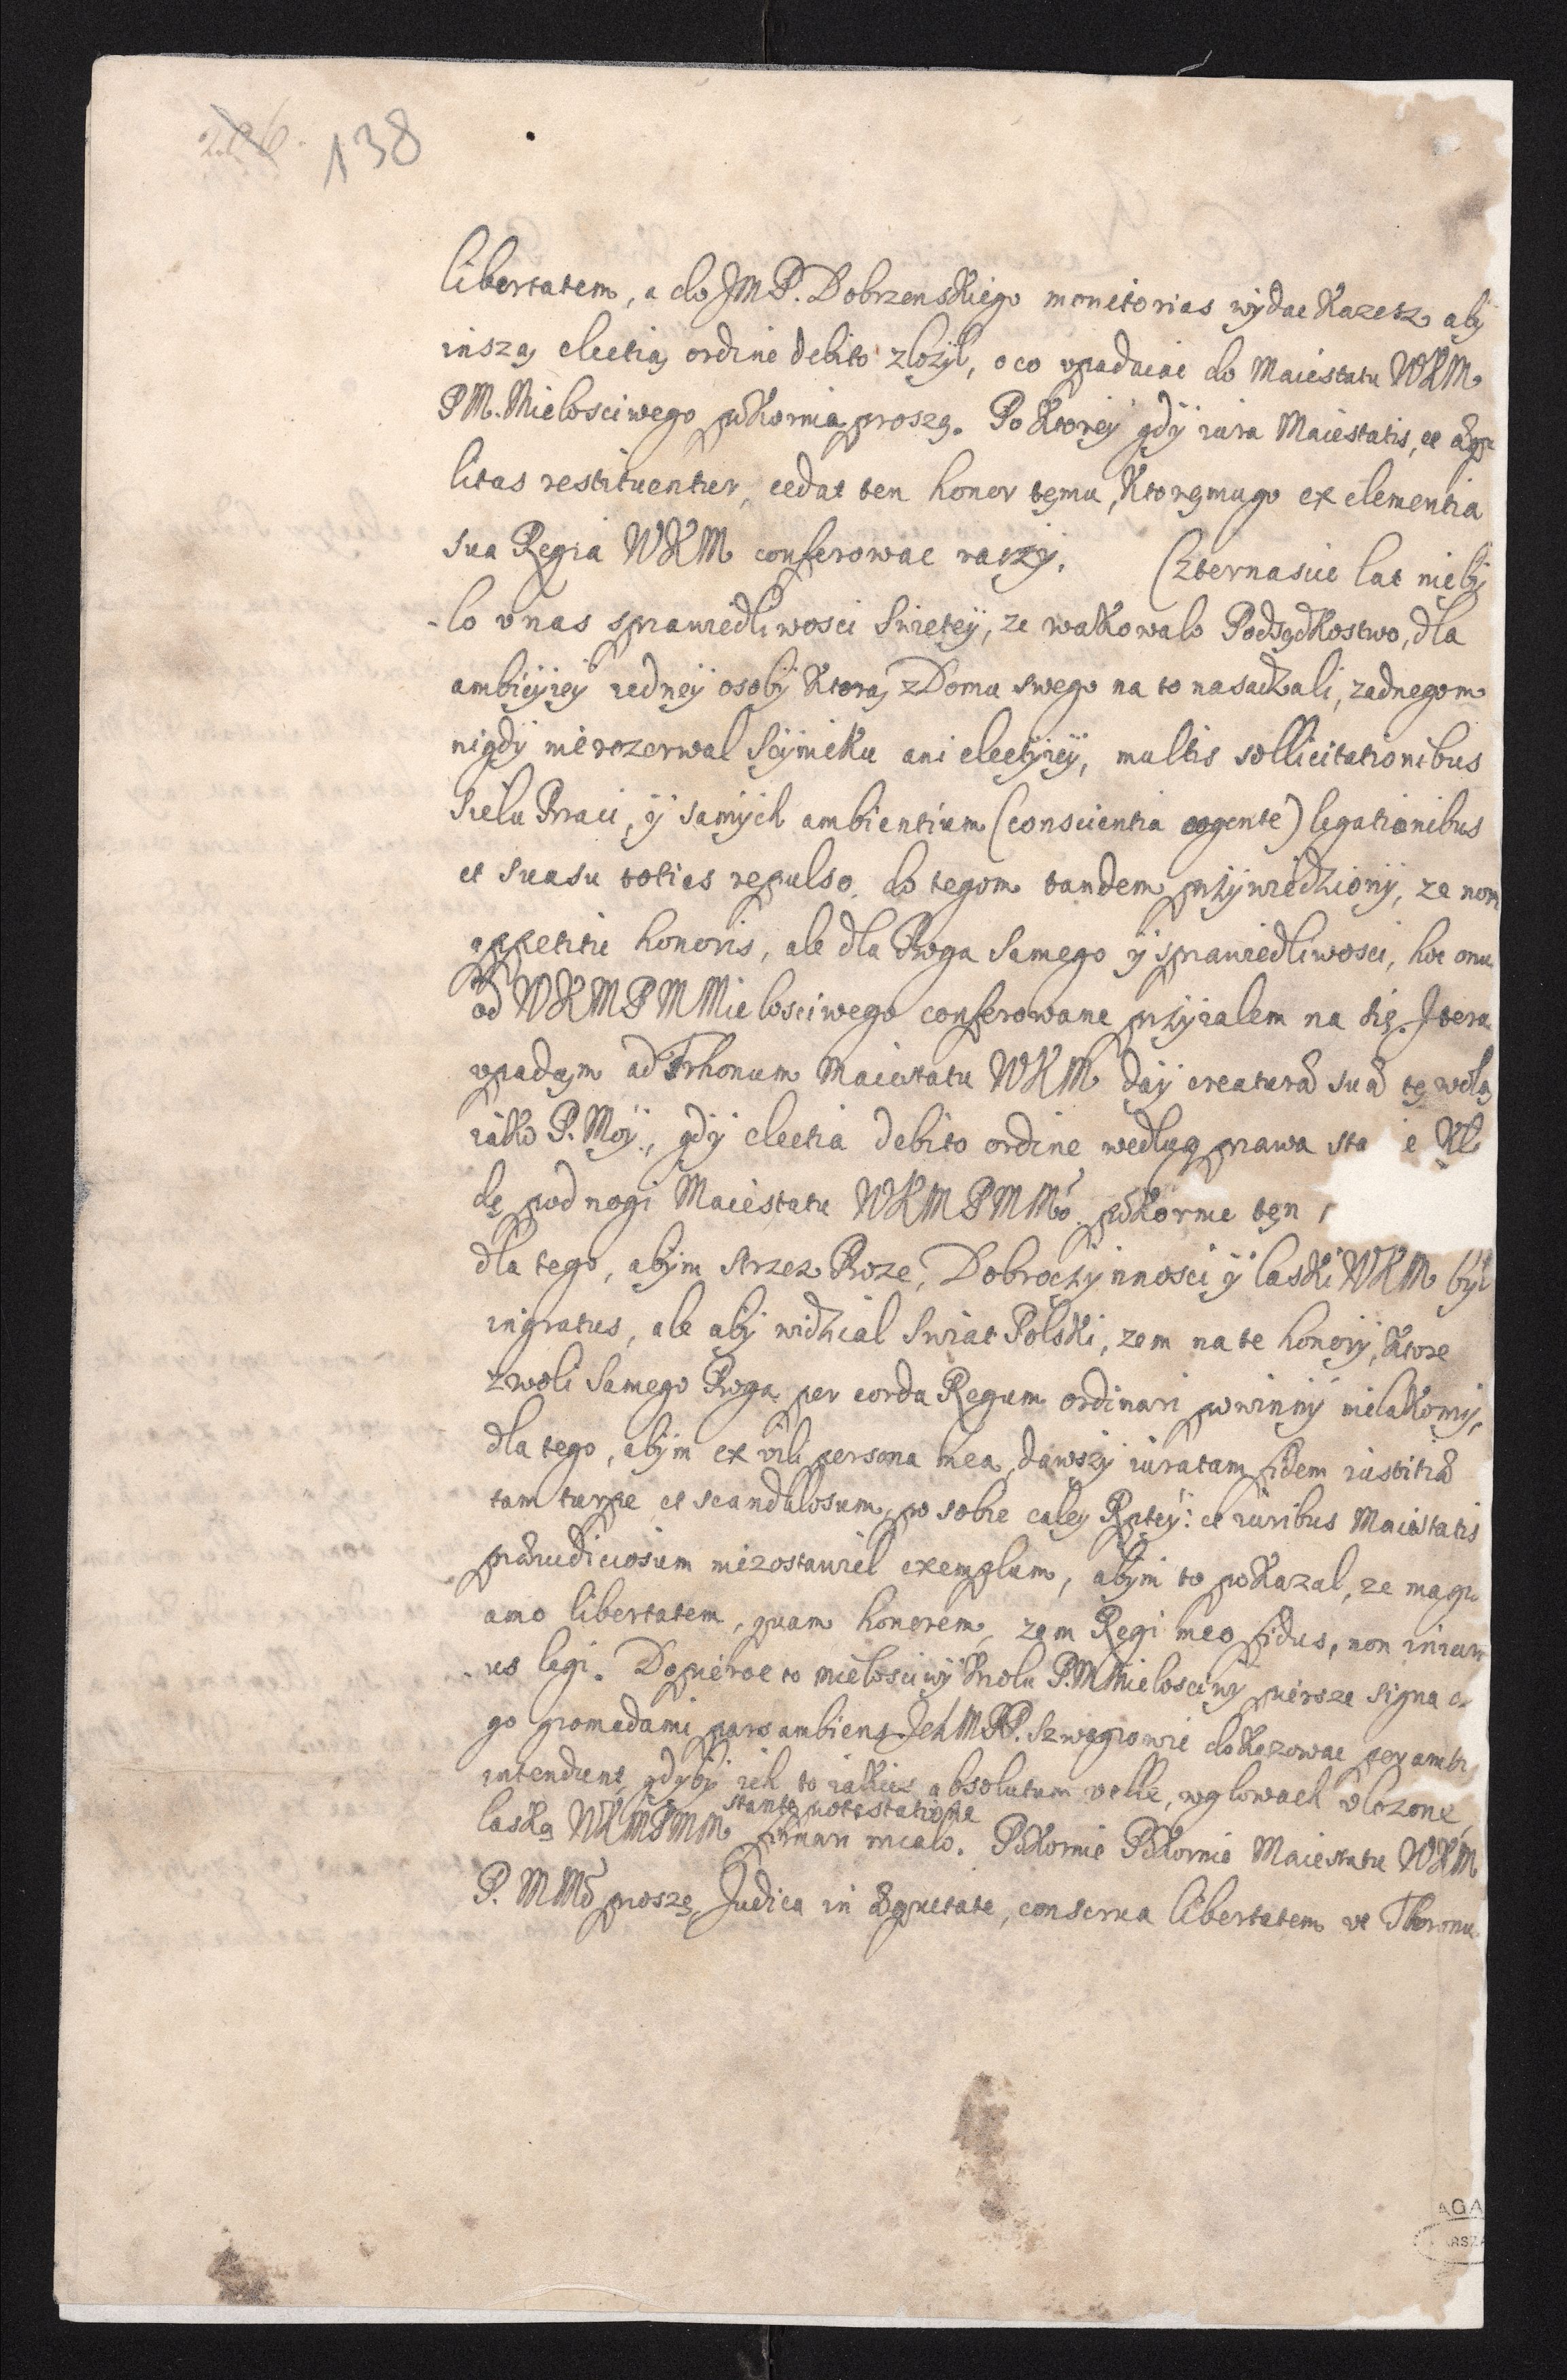 138
libertatem, a do JMP. Dobrzenskiego monitorias wydac Kazesz aby
inszą electią ordine debito zlozyl, o co upadaiac do Maiestatu WKM
PM. Mielosciwego pokornia proszę. Po Ktorey gdy iura Maiestatis, et æqua
litas restituentur, cedat ten honor temu, Ktoremugo ex clementia
sua Regia WKM conferowac raczy. Czternascie lat nieby
-lo v nas sprawiedliwosci Swietey, ze wakowalo Podsędkostwo, dla
ambicyiey iedney osoby Ktorą z Domu swego na to nasadzali, zadnegom
nigdy nierozerwal Seymiku ani electyiey, multis sollicitationibus
Sielu Braci, y samych ambientium (conscientia cogente) legationibus
et suasu toties repulso, do tegom tandem przywiedziony, ze non
appetitu honoris, ale dla Boga Samego y sprawiedliwosci, hoc onu
od WKMPM Mielosciwego conferowane przyialem na się. Itera
upadam ad Trhonum Maiestatu WKM day creaturæ suæ tę wolą
iako P. Moy., gdy electia debito ordine wedlug prawa sta e Kl
dę pod nogi Maiestatu WKMPMMo. pokornie ten
dla tego, abym strzez Boze, Dobroczynnosci y laski WKM byl
ingratus, ale aby widzial Swiat Polski, zem na te honory, Ktore
z woli Samego Boga per corda Regum ordinari powinny nielakomy,
dla tego, abym ex vili persona mea, dawszy iuratam fidem iustitiæ
tam turpe et scandalosum, po sobie caley Rptey: et iuribus Maiestatis
præiudiciosum niezostawiel exemplum, abym to pokazal, ze magis
amo libertatem, quam honorem, zem Regi meo fidus, non iniuri
-us legi. Dopieroe to mielosciwy Krolu P.M Mielosciwy piersze signa
go gromadami pars ambiens Ich MPP. Szwagrowie dokazowac per ambi
intendunt, gdyby ich to iakies absolutum velle, w glowach vlozone,
stante protestatione
laską WKMPMM firmari mialo. Pokornie Pokornie Maiestatu WKM
P. MMo proszę, Judica in æquitate, conserua libertatem ut Thronu
AGA